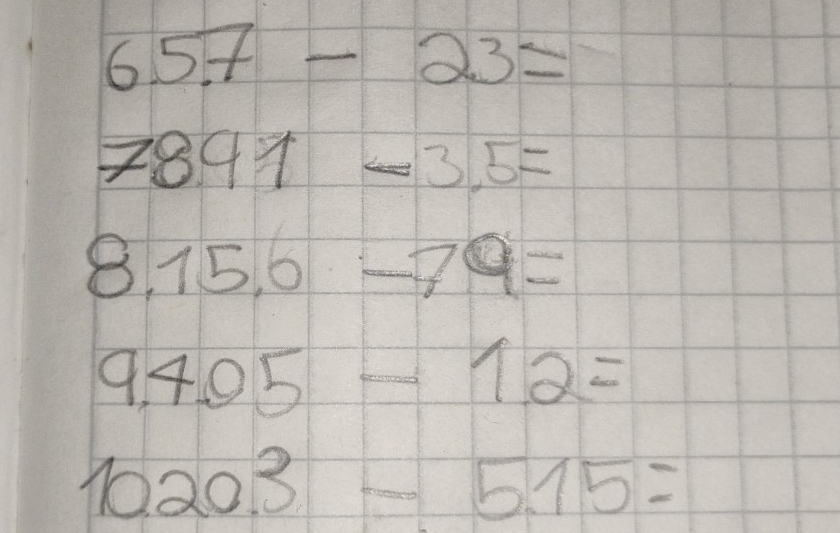 6.5.7 - 2.3=
789.1 - 3.5=
8.15.6 - 79=
9.4.05 - 1.2=
10.20.3 - 5.15=